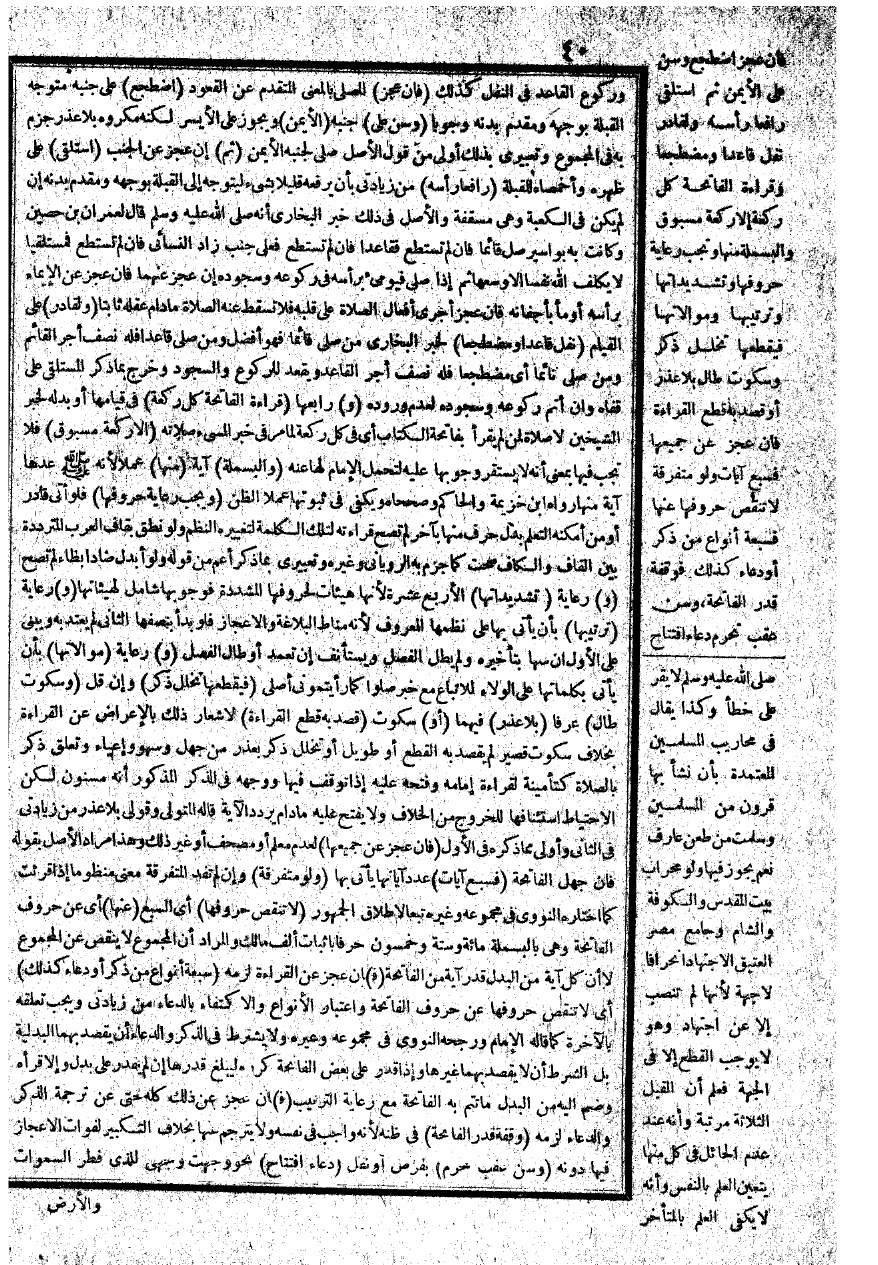 ٤٠
وركوع القاعد فى النفل كذلك (فان عجز) المصلى بالمعنى المتقدم عن القعود (اضطجع) على جنبه متوجه
القبلة بوجهه ومقدم بدنه وجوبا (وسن على) جنبه (الأيمن) ويجوز على الأيسر لكنه مكروه بلا عذر جزم
به فى المجموع وتعبيرى بذلك أولى من قول الأصل صلى لجنبه الأيمن (ثم) إن عجز عن الجنب (استلقى) على
ظهره وأخمصاه للقبلة (رافعا رأسه) من زيادتى بأن يرفعه قليلا بشىء ليتوجه إلى القبلة بوجهه ومقدم بدنه إن
لم يكن فى الكعبة وهى مسقفة والأصل فى ذلك خبر البخارى أنه صلى الله عليه وسلم قال لعمران بن حصين
وكانت به بواسير صل قائما فان لم تستطع فقاعدا فان لم تستطع فعلى جنب زاد النسائى فان لم تستطع فمستلقيا
لا يكلف الله نفسا الا وسعها ثم إذا صلى فيومىء برأسه فى ركوعه وسجوده إن عجز عنهما فان عجز عن الإيماء
برأسه أومأ بأجفانه فان عجز أجرى أفعال الصلاة على قلبه فلا تسقط عنه الصلاة مادام عقله ثابتا (ولقادر) على
القيام (نفل قاعدا ومضطجعا) لخبر البخارى من صلى قائما فهو أفضل ومن صلى قاعدا فله نصف أجر القائم
ومن صلى نائما أى مضطجعا فله نصف أجر القاعد ويقعد للركوع والسجود وخرج بما ذكر المستلقى على
قفاه وان أتم ركوعه وسجوده لعدم وروده (و) رابعها (قراءة الفاتحة كل ركعة) فى قيامها أو بدله لخبر
الشيخين لا صلاة لمن لم يقرأ بفاتحة الكتاب أى فى كل ركعة لما مر فى خبر المسىء صلاته (الا ركعة مسبوق) فلا
تجب فيها بمعنى أنه لا يستقر وجوبها عليه لتحمل الإمام لها عنه (والبسملة) آية (منها) عملا لأنه ﷺ عدها
آية منها رواه ابن خزيمة والحاكم وصححاه ويكفى فى ثبوتها عملا الظن (ويجب رعاية حروفها) فلو أتى قادر
أو من أمكنه التعلم بدل حرف منها بآخر لم تصح قراءته لتلك الكلمة لتغييره النظم ولو نطق بقاف العرب المترددة
بين القاف والكاف صحت كما جزم به الرويانى وغيره وتعبيرى بما ذكر أعم من قوله ولو أبدل ضادا بظاء لم تصح
(و) رعاية (تشديداتها) الأربع عشرة لأنها هيئات لحروفها المشددة فوجوبها شامل لهيئاتها (و) رعاية
(ترتيبها) بأن يأتى بها على نظمها المعروف لأنه مناط البلاغة والاعجاز فلو بدأ بنصفها الثانى لم يعتد به ويبنى
على الأول ان سها بتأخيره ولم يطل الفصل ويستأنف إن تعمد أو طال الفصل (و) رعاية (موالاتها) بأن
يأتى بكلماتها على الولاء للاتباع مع خبر صلوا كما رأيتمونى أصلى (فيقطعها تخلل ذكر) وإن قل (وسكوت
طال) عرفا (بلا عذر) فيهما (أو) سكوت (قصد به قطع القراءة) لاشعار ذلك بالإعراض عن القراءة
بخلاف سكوت قصير لم يقصد به القطع أو طويل أو تخلل ذكر بعذر من جهل وسهو وإعياء وتعلق ذكر
بالصلاة كتأمينه لقراءة إمامه وفتحه عليه إذا توقف فيها ووجهه فى الذكر المذكور أنه مسنون لكن
الاحتياط استئنافها للخروج من الخلاف ولا يفتح عليه مادام يردد الآية قاله المتولى وقولى بلا عذر من زيادتى
فى الثانى وأولى مما ذكره فى الأول (فان عجز عن جميعها) لعدم معلم أو مصحف أو غير ذلك وهذا مراد الأصل بقوله
فان جهل الفاتحة (فسبع آيات) عدد آياتها يأتى بها (ولو متفرقة) وإن لم تفد المتفرقة معنى منظوما إذا قرئت
كما اختاره النووى فى مجموعه وغيره تبعا لاطلاق الجمهور (لا تنقص حروفها) أى السبع (عنها) أى عن حروف
الفاتحة وهى بالبسملة مائة وستة وخمسون حرفا باثبات ألف مالك والمراد أن المجموع لا ينقص عن المجموع
لا أن كل آية من البدل قدر آية من الفاتحة (ف) ان عجز عن القراءة لزمه (سبعة أنواع من ذكر أو دعاء كذلك)
أى لا تنقص حروفها عن حروف الفاتحة واعتبار الأنواع والا كتفاء بالدعاء من زيادتى ويجب تعلقه
بالآخرة كما قاله الإمام ورجحه النووى فى مجموعه وغيره ولا يشترط فى الذكر والدعاء أن يقصد بهما البدلية
بل الشرط أن لا يقصد بهما غيرها وإذا قدر على بعض الفاتحة كرره ليبلغ قدرها إن لم يقدر على بدل وإلا قرأه
وضم اليه من البدل ما تتم به الفاتحة مع رعاية الترتيب (ف) ان عجز عن ذلك كله حتى عن ترجمة الذكر
والدعاء لزمه (وقفة قدر الفاتحة) فى ظنه لأنه واجب فى نفسه ولا يترجم عنها بخلاف التكبير لفوات الاعجاز
فيها دونه (وسن عقب تحرم) بفرض أو نفل (دعاء افتتاح) نحو وجهت وجهى للذى فطر السموات
والأرض
فان عجز اضطجع وسن
على الأيمن ثم استلقى
رافعا رأسه ولقادر
نفل قاعدا ومضطجعا
وقراءة الفاتحة كل
ركعة إلا ركعة مسبوق
والبسملة منها وتجب رعاية
حروفها وتشديداتها
وترتيبها وموالاتها
فيقطعها تخلل ذكر
وسكوت طال بلا عذر
أو قصد به قطع القراءة
فان عجز عن جميعها
فسبع آيات ولو متفرقة
لا تنقص حروفها عنها
فسبعة أنواع من ذكر
أو دعاء كذلك فوقفة
قدر الفاتحة، وسن
عقب تحرم دعاء افتتاح
صلى الله عليه وسلم لا يقر
على خطأ وكذا يقال
فى محاريب المسلمين
المعتمدة بأن نشأ بها
قرون من المسلمين
وسلمت من طعن عارف
نعم يجوز فيها ولو محراب
بيت المقدس والكوفة
والشام وجامع مصر
العتيق الاجتهاد انحرافا
لا جهة لأنها لم تنصب
إلا عن اجتهاد وهو
لا يوجب القطع إلا فى
الجهة فعلم أن القبل
الثلاثة مرتبة وأنه عند
عدم الحائل فى كل منها
يتعين العلم بالنفس وأنه
لا يكفى العلم بالمتأخر